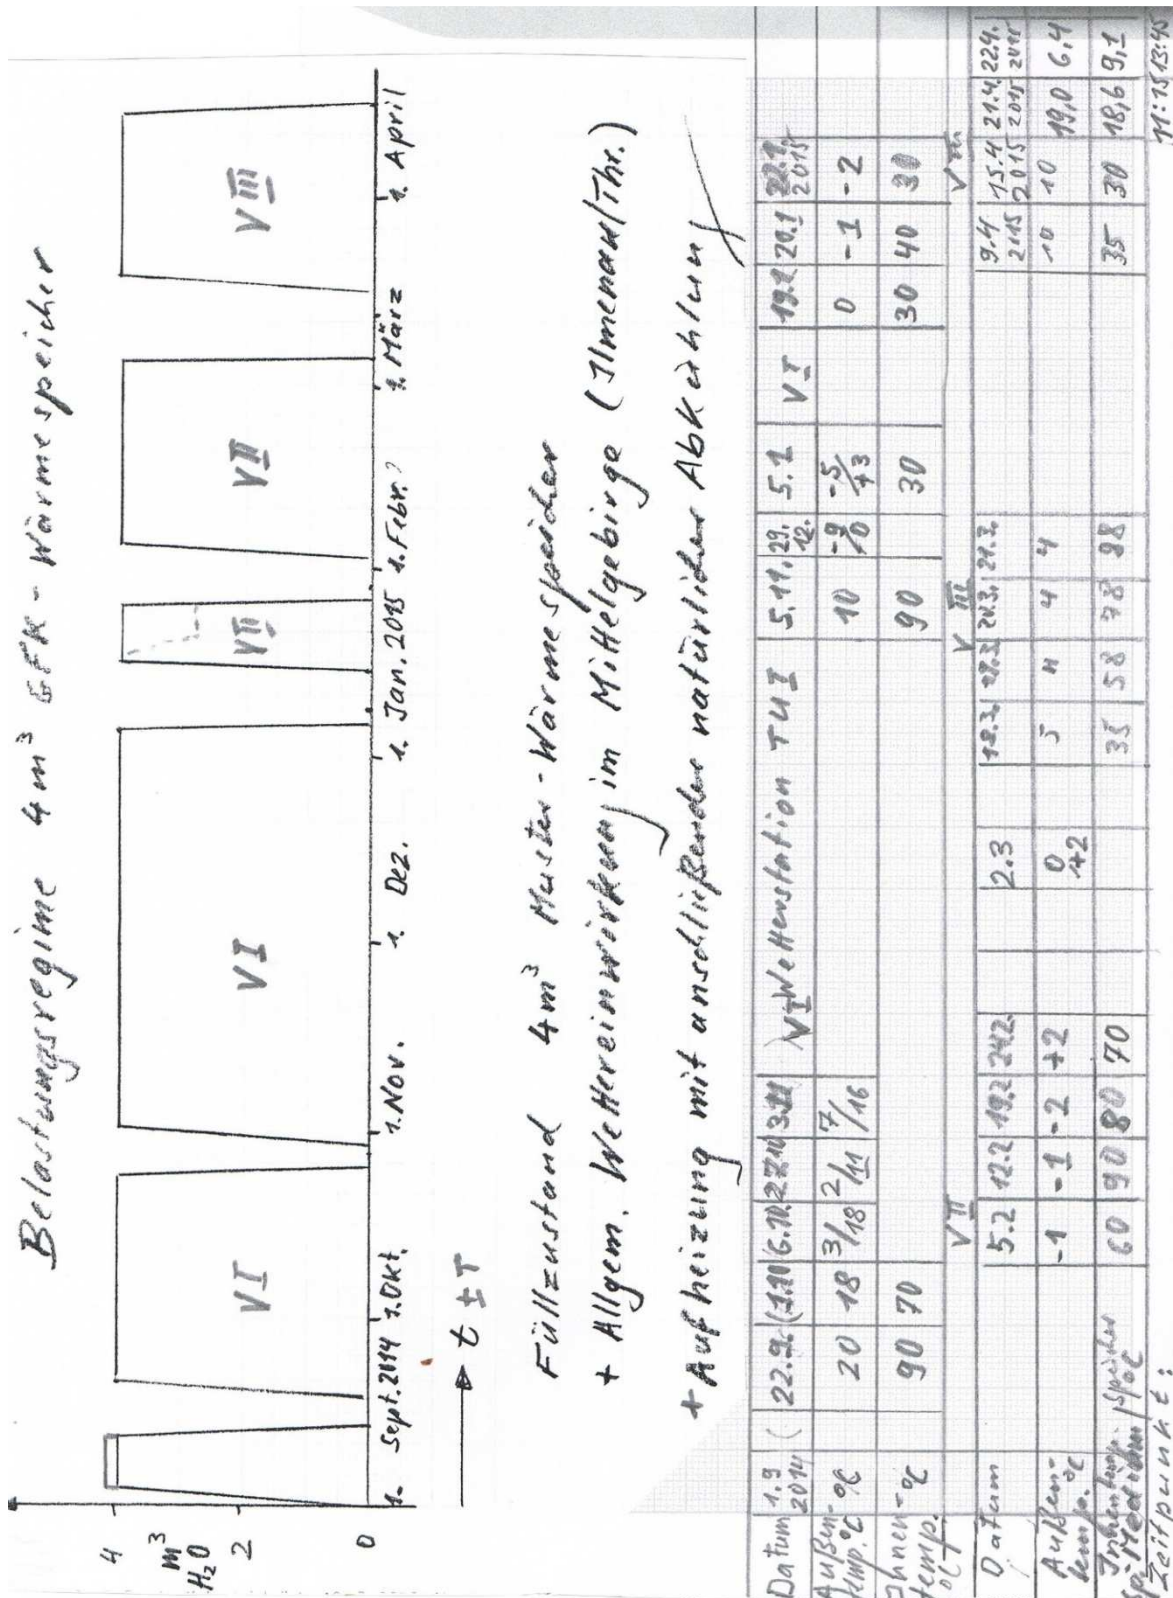 Belastungsregime 4 m³ GFK - Wärmespeicher
4
m³
H₂O
2
0
V I
V I
V II
V II
V III
1. Sept. 2014 1. Okt. 1. Nov. 1. Dez. 1. Jan. 2015 1. Febr. 1. März 1. April
t ± T
Füllzustand 4 m³ Muster-Wärmespeicher
+ Allgem. Wettereinwirkung im Mittelgebirge (Ilmenau/Thr.)
+ Aufheizung mit anschließender natürlicher Abkühlung
Datum 1.9 2014 22.9. (1.10 6.10. 27.10 3.11 V I Wetterstation TUI 5.11. 29.12. 5.1 V I 19.1 20.1 22.1 2015
Außen-temp. °C 20 18 3/18 2/11 7/16 10 -9/0 -5/+3 0 -1 -2
Innen-temp. °C 90 70 90 30 30 40 30
V II V III V III
Datum 5.2 12.2 19.2 24.2. 2.3 18.3. 20.3. 21.3. 9.4 2015 15.4 2015 21.4. 2015 22.4. 2015
Außen-temp. °C -1 -1 -2 +2 0 +2 5 4 4 4 10 10 19,0 6,4
Innentemp. Sp.-Medium/Speicher °C 60 90 80 70 35 58 78 88 35 30 18,6 9,1
Zeitpunkt: 11:15 13:45